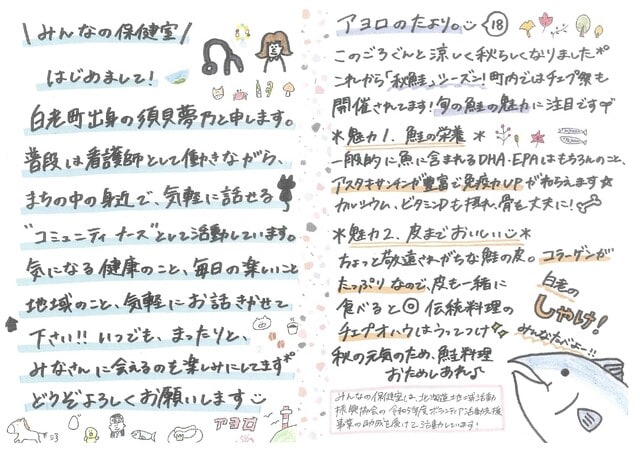 \みんなの保健室/
はじめまして!
白老町出身の須貝夢乃と申します。
普段は看護師として働きながら、
まちの中の身近で、気軽に話せる
"コミュニティナース"として活動しています。
気になる健康のこと、毎日の楽しいこと
地域のこと、気軽にお話きかせて
下さい!!いつでも、まったりと、
みなさんに会えるのも楽しみにしてます
どうぞよろしくお願いします
アヨロ
アヨロのたより。 18
このごろぐんと涼しく秋らしくなりました
これから「秋鮭」シーズン!町内ではチェプ祭も
開催されてます!旬の鮭の魅力に注目です
*魅力1. 鮭の栄養*
一般的に魚に含まれるDHA・EPAはもちろんのこと、
アスタキサンチンが豊富で免疫力UPがねらえます☆
カルシウム、ビタミンDも摂れ、骨も丈夫に!
*魅力2. 皮までおいしい
ちょっと敬遠されがちな鮭の皮。コラーゲンが
たっぷりなので、皮も一緒に
食べると◎ 伝統料理の
チェプオハウはうってつけ
秋の元気のため、鮭料理
おためしあれ♪
白老の
しゃけ!
みんなたべよー!!
みんなの保健室は、北海道地域活動
振興協会の令和5年度ボランティア活動支援
事業の助成を受けて活動しています!